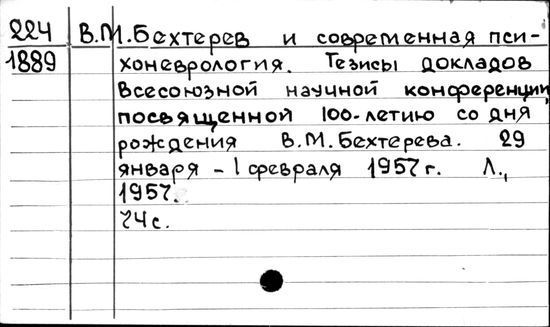 224 В.М.Бехтерев и современная пси-
1889 хоневрология. Тезисы докладов
Всесоюзной научной конференции,
посвященной 100-летию со дня
рождения В.М.Бехтерева. 29
января - 1 февраля 1957 г. Л.,
1957.
74с.